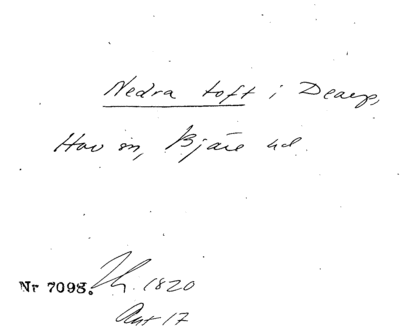 Nedra toft i Dearp,
Hov sn, Bjäre hd.
Nr 7098. Lh. 1820
Ant 17